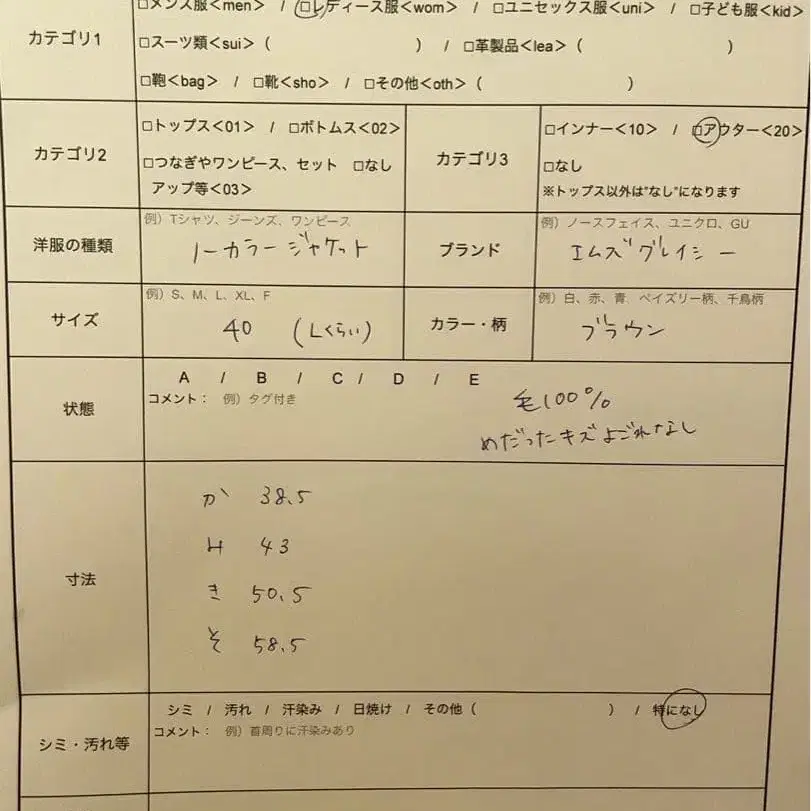 カテゴリ1
□メンズ服<men> / □レディース服<wom> / □ユニセックス服<uni> / □子ども服<kid>
□スーツ類<sui>( ) / □革製品<lea>( )
□鞄<bag> / □靴<sho> / □その他<oth>( )
カテゴリ2
□トップス<01> / □ボトムス<02>
□つなぎやワンピース、セット □なし
アップ等<03>
カテゴリ3
□インナー<10> / □アウター<20>
□なし
※トップス以外は"なし"になります
洋服の種類
例）Tシャツ、ジーンズ、ワンピース
ノーカラージャケット
ブランド
例）ノースフェイス、ユニクロ、GU
エムズグレイシー
サイズ
例）S、M、L、XL、F
40 (Lくらい)
カラー・柄
例）白、赤、青、ペイズリー柄、千鳥柄
ブラウン
状態
A / B / C / D / E
コメント： 例）タグ付き
毛100%
めだったキズよごれなし
寸法
か 38.5
み 43
き 50.5
そ 58.5
シミ・汚れ等
シミ / 汚れ / 汗染み / 日焼け / その他( ) / 特になし
コメント： 例）首周りに汗染みあり